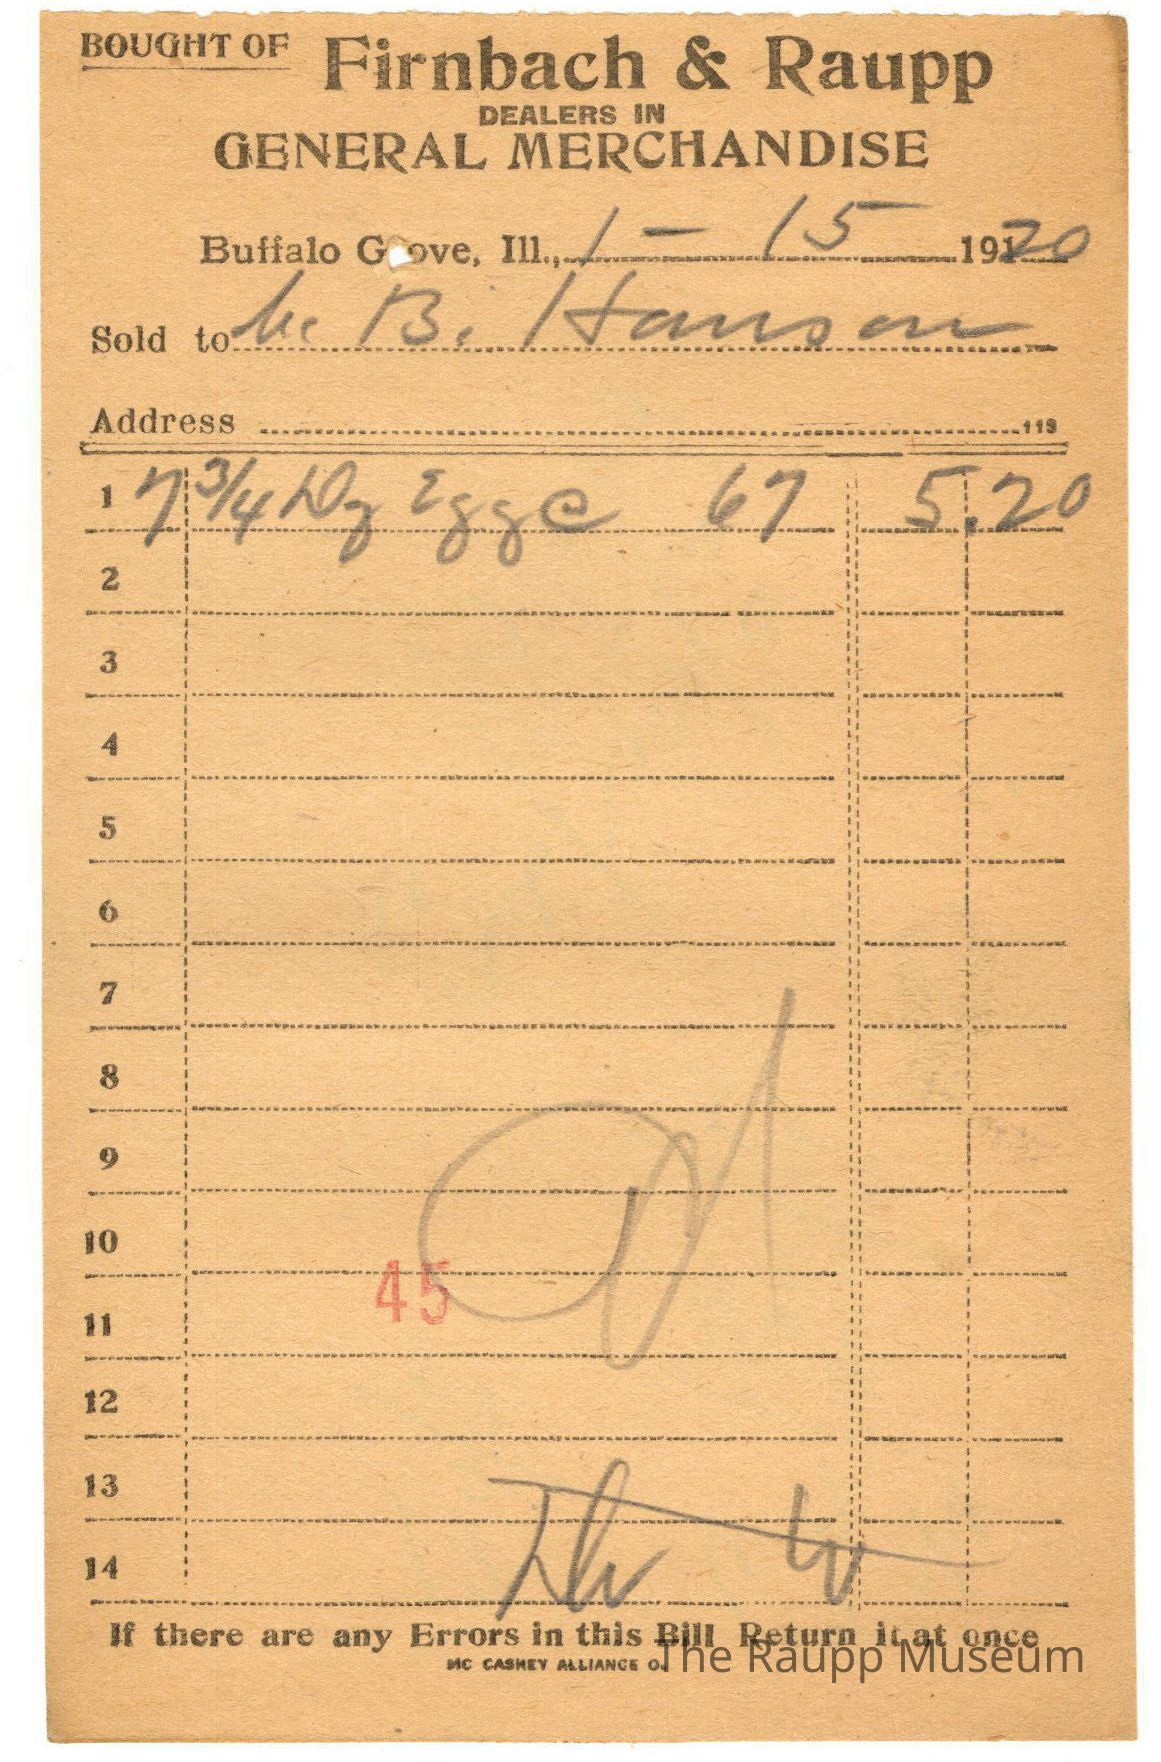 BOUGHT OF Firnbach & Raupp
DEALERS IN
GENERAL MERCHANDISE
Buffalo Grove, Ill., 1 - 15 1920
Sold to B. Hanson
Address 113
1 7 3/4 Dz Eggs 67 5.20
2
3
4
5
6
7
8
9
10
45
11
12
13
14
If there are any Errors in this Bill Return it at once
MC CASKEY ALLIANCE O.
The Raupp Museum